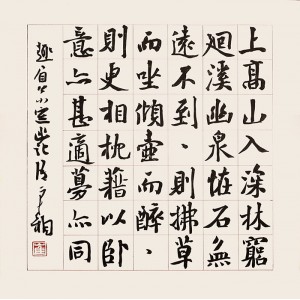 上高山入深林窮
廻溪幽泉怪石無
遠不到、則拂草
而坐傾壺而醉、
則更相枕藉以卧
意亦甚適夢亦同
趣